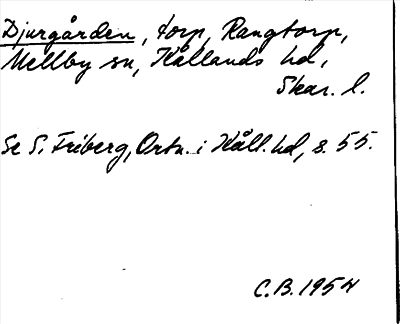 Djurgården, torp, Rangtorp,
Mellby sn, Kållands hd,
Skar. l.
Se S. Friberg, Ortn. i Kåll. hd, s. 55.
C.B. 1954